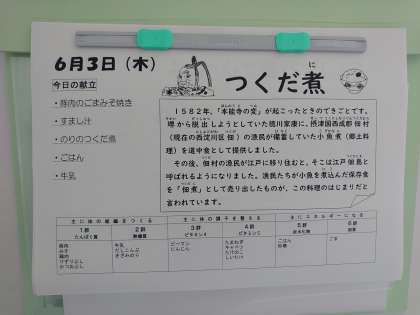 6月3日（木）
つくだ煮
に
今日の献立
・豚肉のごまみそ焼き
・すまし汁
・のりのつくだ煮
・ごはん
・牛乳
１５８２年、「本能寺の変」が起こったときのできごとです。
堺から脱出しようとしていた徳川家康に、摂津国西成郡佃村
（現在の西淀川区佃）の漁民が備蓄していた小魚煮（郷土料
理）を道中食として提供しました。
その後、佃村の漁民が江戸に移り住むと、そこは江戸佃島と
呼ばれるようになりました。漁民たちが小魚を煮込んだ保存食
を「佃煮」として売り出したものが、この料理のはじまりだと
言われています。
主に体の組織をつくる 主に体の調子を整える 主にエネルギーになる
1群 2群 3群 4群 5群 6群
たんぱく質 無機質 ビタミンA ビタミンC 炭水化物 脂質
豚肉 牛乳 ピーマン たまねぎ ごはん ごま
みそ だしこんぶ にんじん キャベツ 砂糖
鶏肉 きざみのり たけのこ
けずりぶし しいたけ
かつおぶし